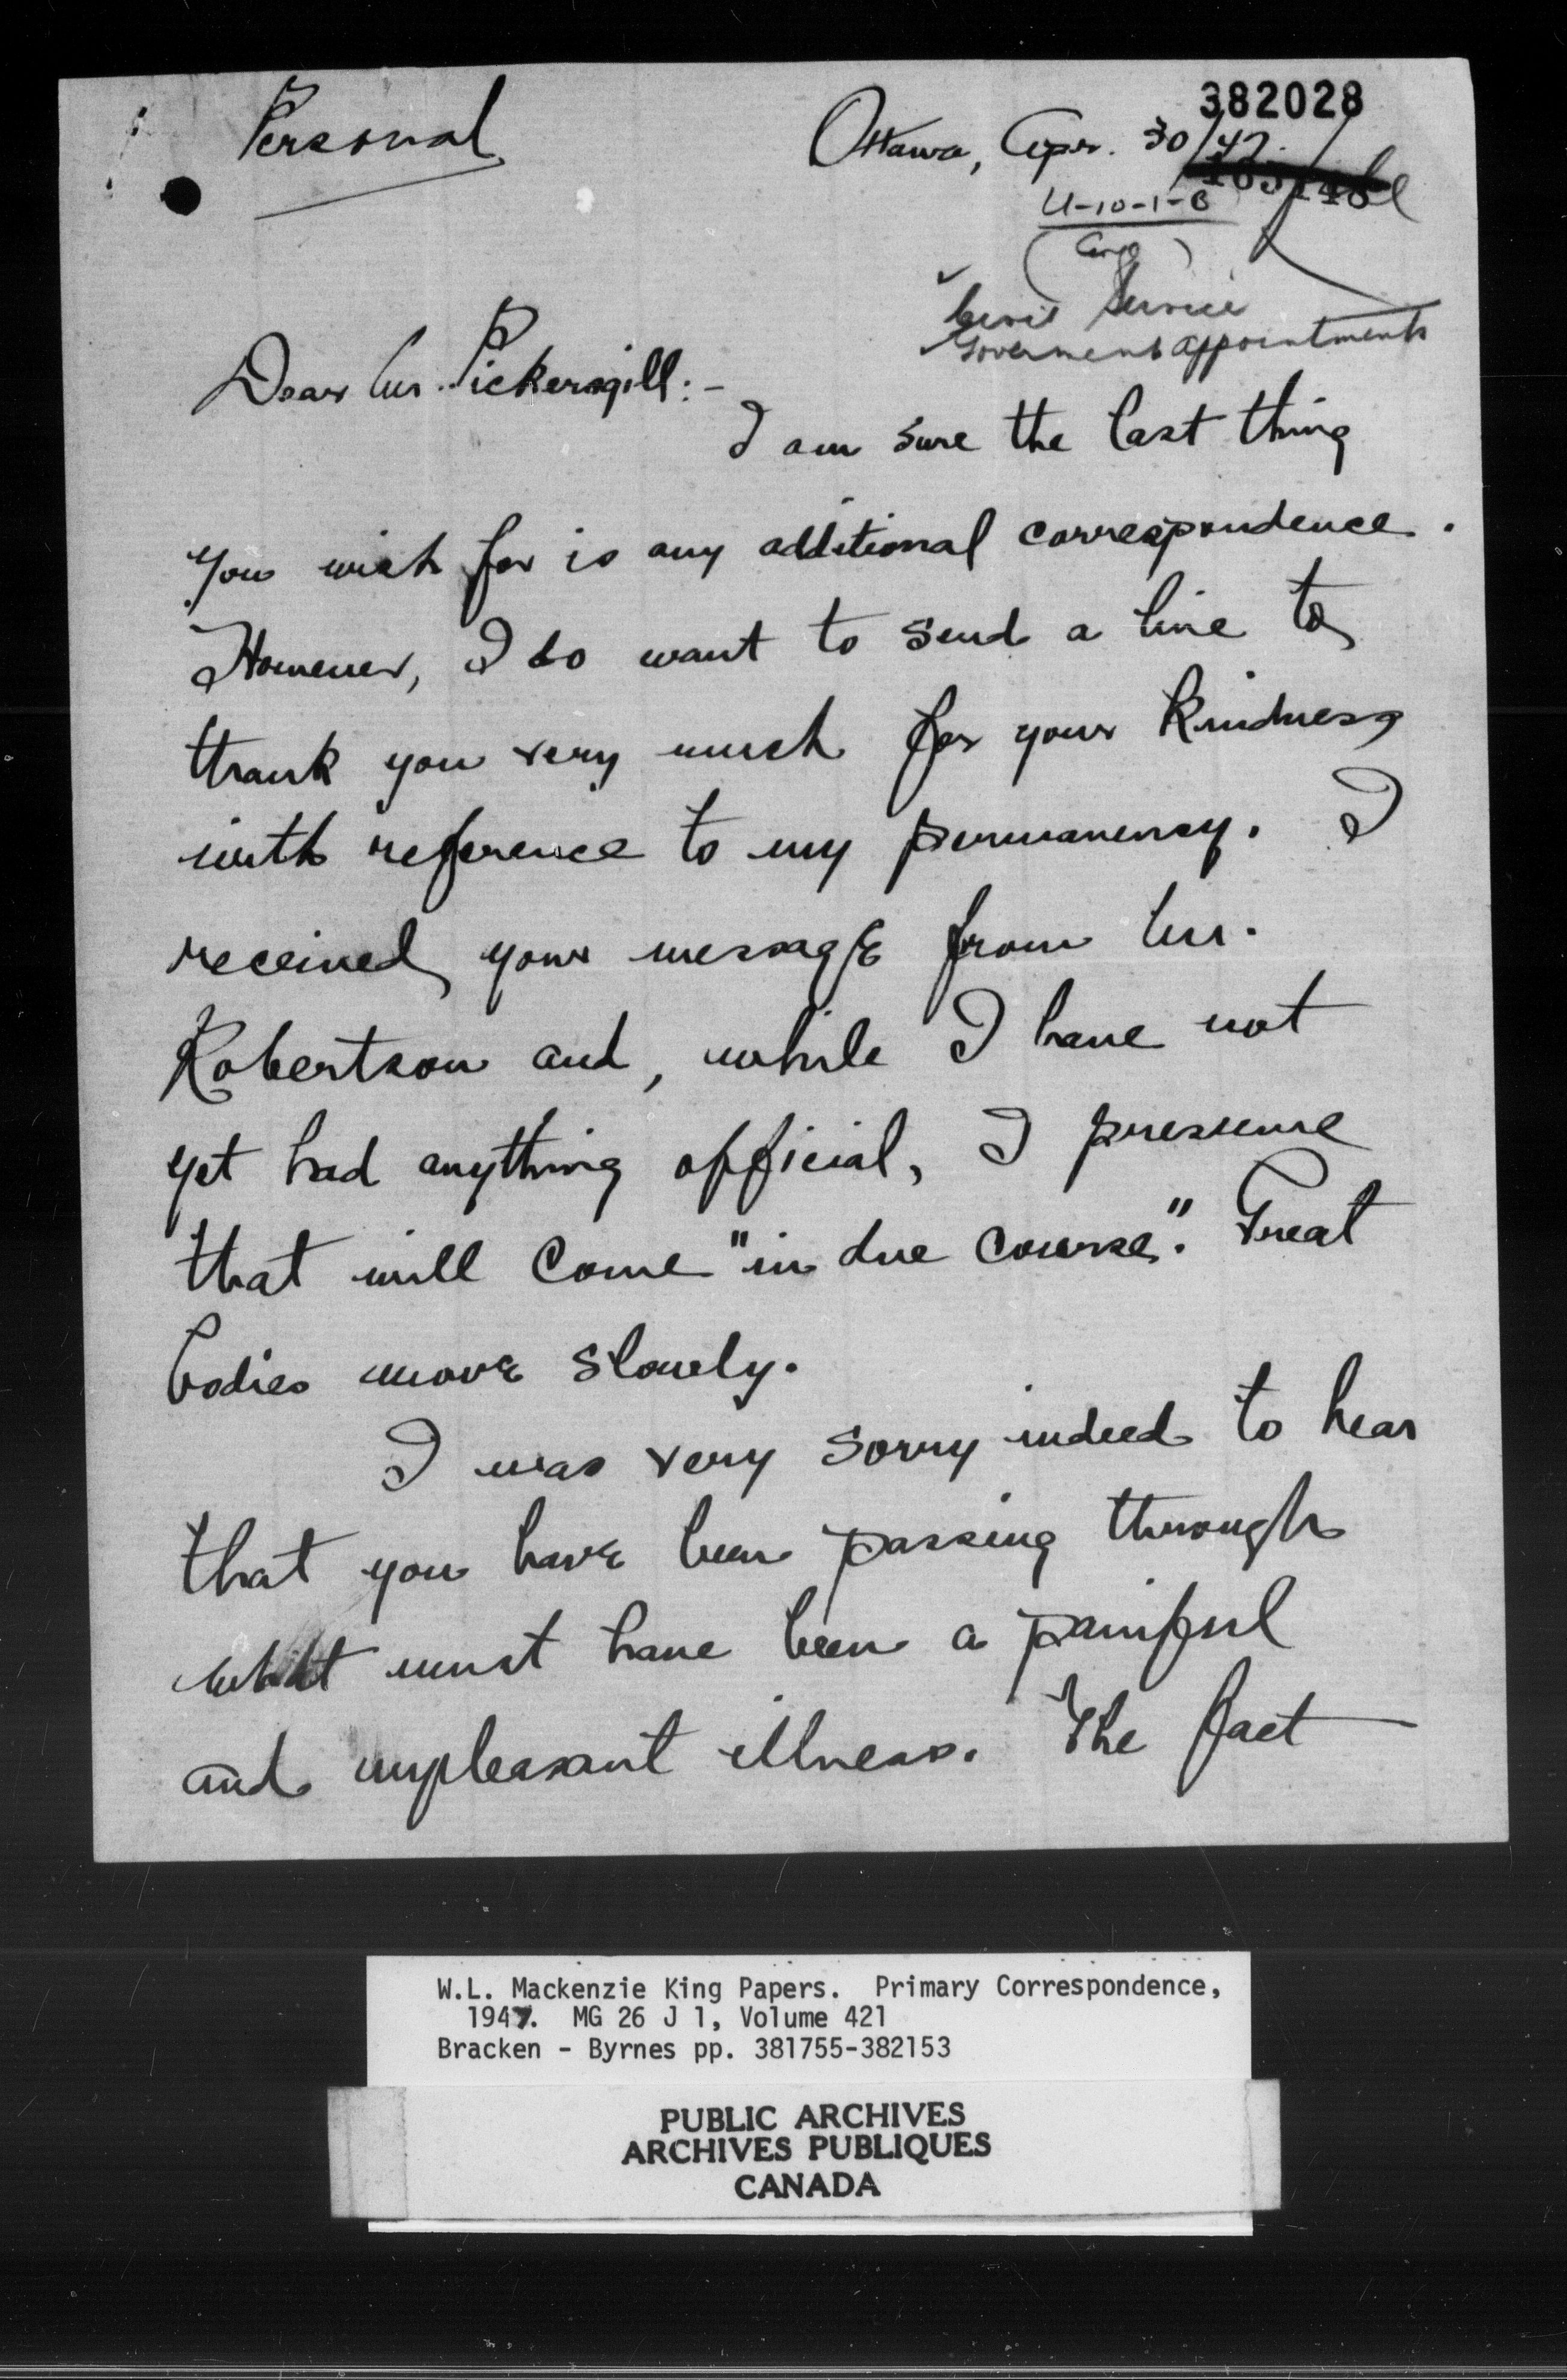 382028
Personal
Ottawa, Apr. 30/47.
U-10-1-B
Civil Service
Government appointments
Dear Mr. Pickersgill:-
I am sure the last thing
you wish for is any additional correspondence.
However, I do want to send a line to
thank you very much for your kindness
with reference to my permanency. I
received your message from Mr.
Robertson and, while I have not
yet had anything official, I presume
that will come "in due course". Great
bodies move slowly.
I was very sorry indeed to hear
that you have been passing through
what must have been a painful
and unpleasant illness. The fact
W.L. Mackenzie King Papers. Primary Correspondence,
1947. MG 26 J 1, Volume 421
Bracken - Byrnes pp. 381755-382153
PUBLIC ARCHIVES
ARCHIVES PUBLIQUES
CANADA